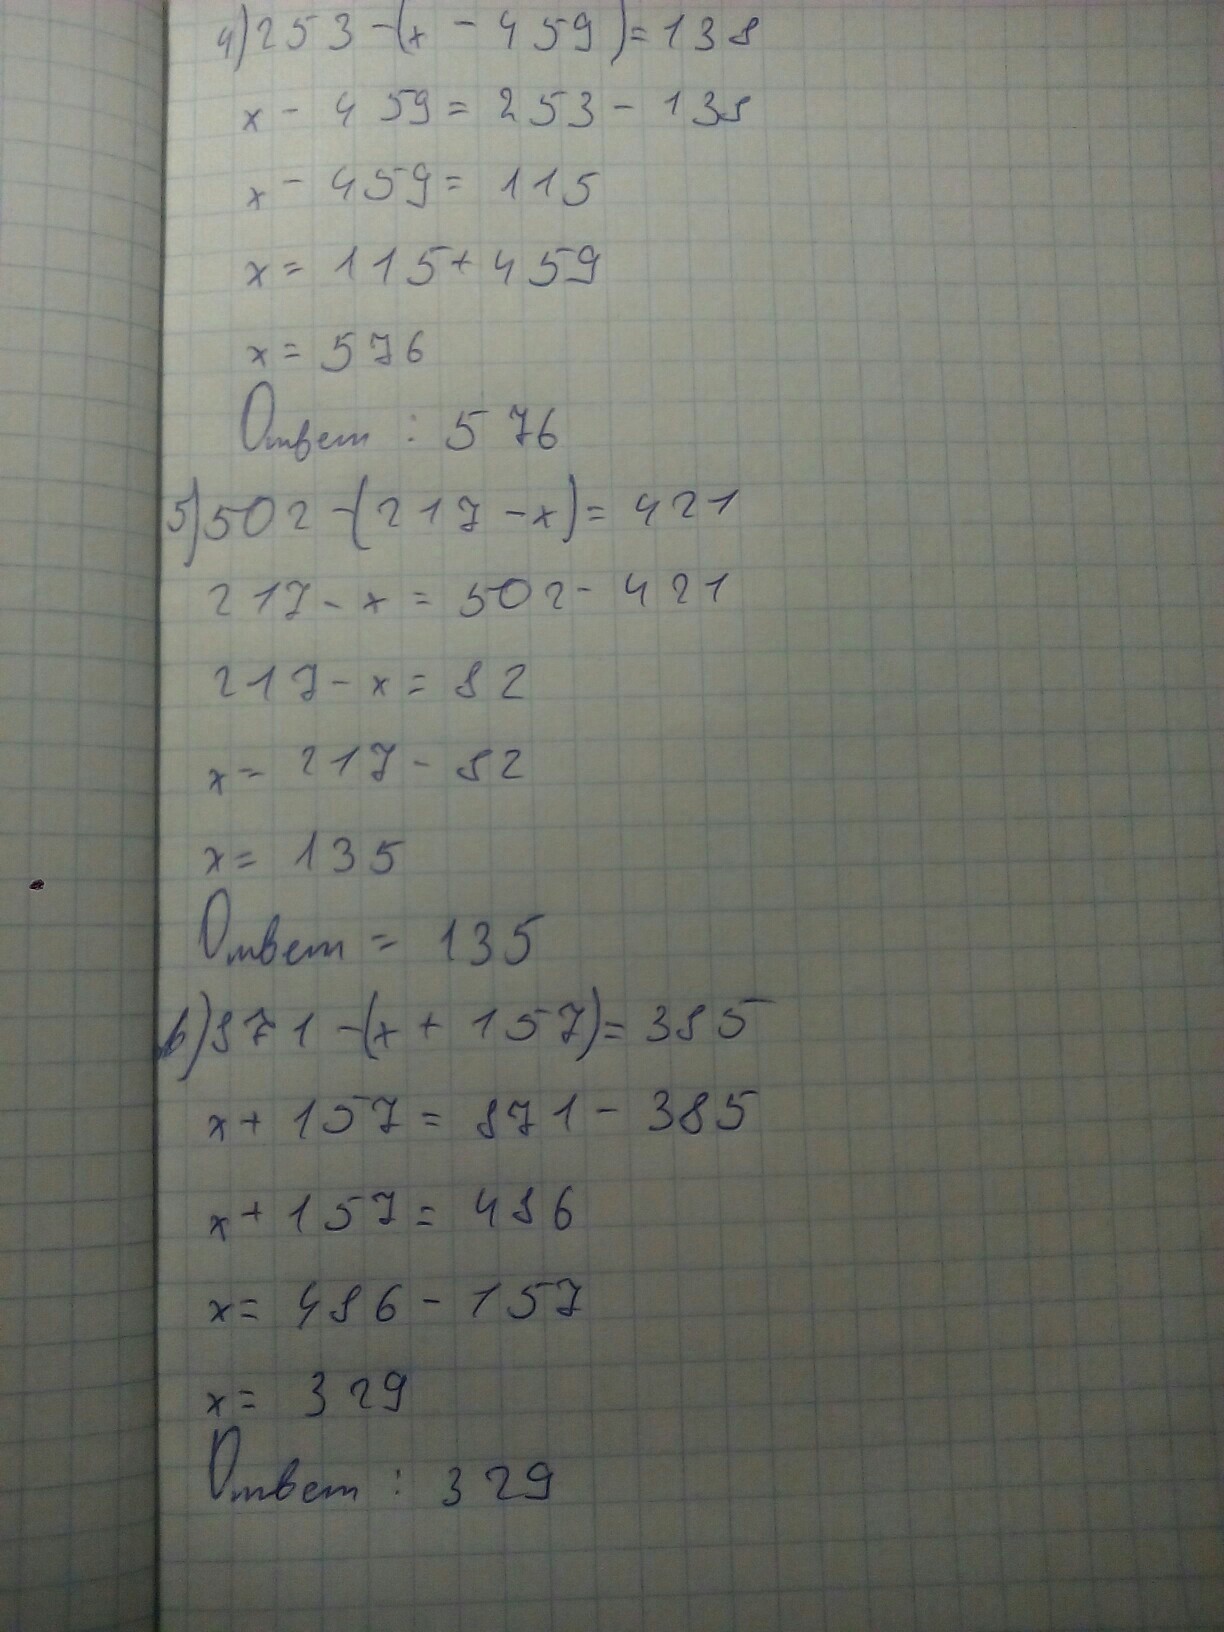 4) 253 - (x - 459) = 138
x - 459 = 253 - 138
x - 459 = 115
x = 115 + 459
x = 576
Ответ : 576
5) 502 - (217 - x) = 421
217 - x = 502 - 421
217 - x = 82
x = 217 - 82
x = 135
Ответ = 135
6) 871 - (x + 157) = 385
x + 157 = 871 - 385
x + 157 = 486
x = 486 - 157
x = 329
Ответ : 329